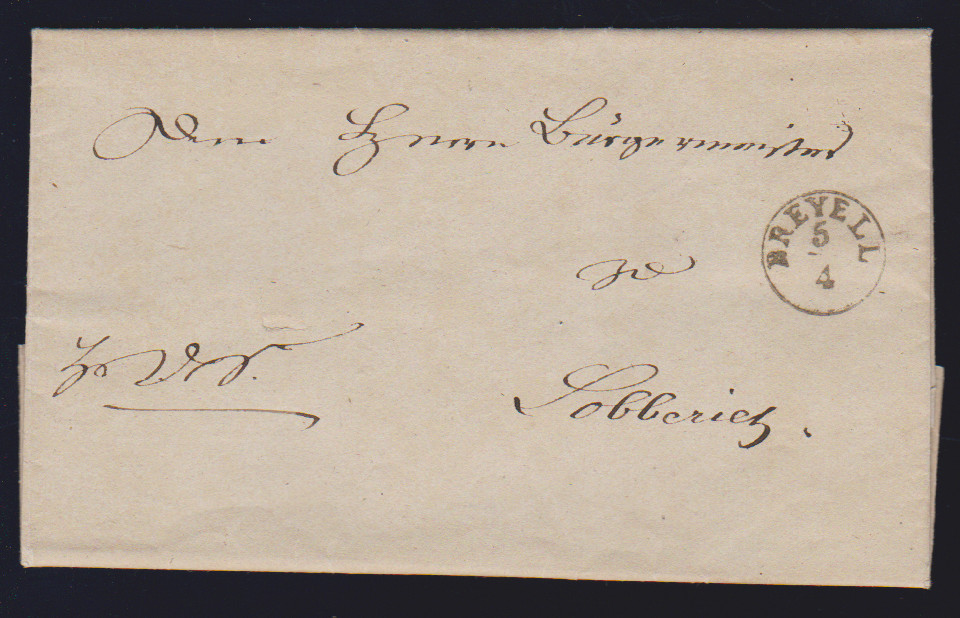 Dem Herrn Bürgermeister
BREYELL
5
4
zu
Lobberich.